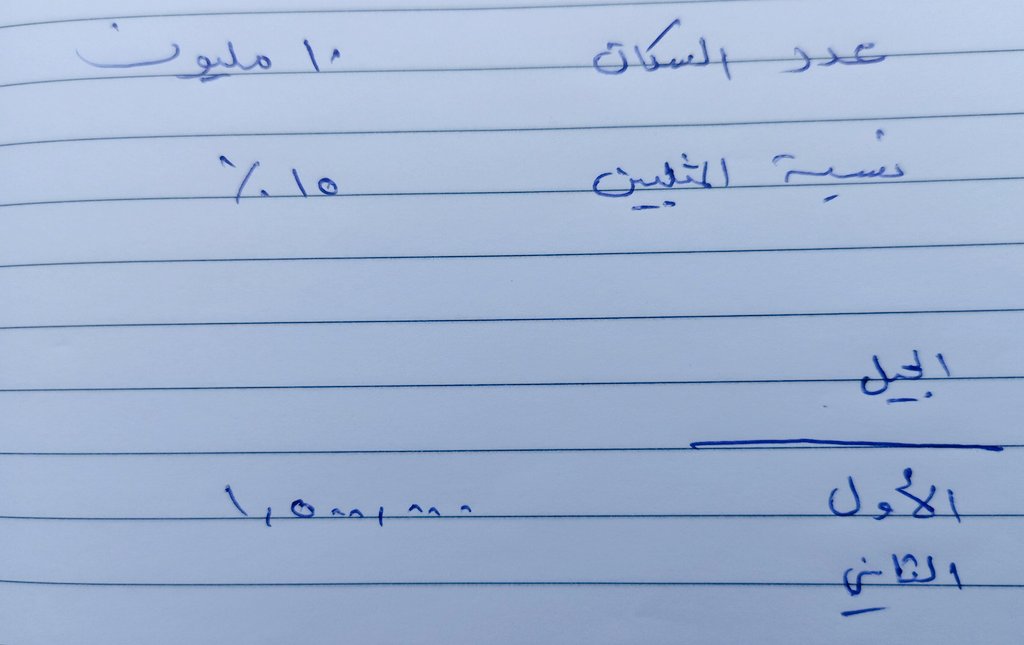 عدد السكان ١٠ مليون
نسبة المثليين ١٥ ٪
الجيل
الأول ١,٥٠٠,٠٠٠
الثاني